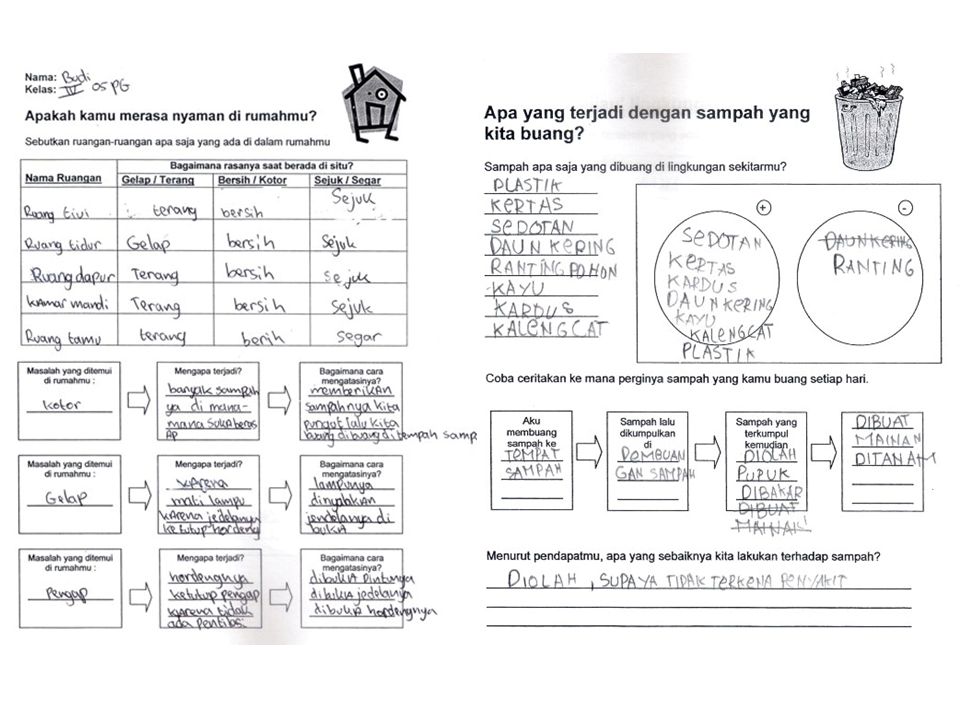 Nama: Budi
Kelas: IV 05 PG
Apakah kamu merasa nyaman di rumahmu?
Sebutkan ruangan-ruangan apa saja yang ada di dalam rumahmu
Bagaimana rasanya saat berada di situ?
Nama Ruangan Gelap / Terang Bersih / Kotor Sejuk / Segar
Ruang tivi terang bersih Sejuk
Ruang tidur Gelap bersih Sejuk
Ruang dapur Terang bersih Sejuk
kAmar mandi Terang bersih Sejuk
Ruang tamu terang berih Segar
Masalah yang ditemui di rumahmu :
kotor
Mengapa terjadi?
banyak sampah
ya di mana-
mana
Bagaimana cara mengatasinya?
memberikAn
sampahnya kita
pungut lalu kita
buang dibuang di tempah samp
Masalah yang ditemui di rumahmu :
Gelap
Mengapa terjadi?
kArena
mati lampu
kArena jedelanya
ketutup hordeng
Bagaimana cara mengatasinya?
lampunya
dinyalkAn
jendelanya di
bukA
Masalah yang ditemui di rumahmu :
Pengap
Mengapa terjadi?
hordengnya
ketutup pengap
kArena tidak
ada pentilasi
Bagaimana cara mengatasinya?
dibukA pintunya
dibukA jedelanya
dibukA hordengnya
Apa yang terjadi dengan sampah yang
kita buang?
Sampah apa saja yang dibuang di lingkungan sekitarmu?
PLASTIK
KERTAS
SEDOTAN
DAUN KERING
RANTING POHON
KAYU
KARDUS
KALENGCAT
+
SEDOTAN
KERTAS
KARDUS
DAUN KERING
KAYU
KALENGCAT
PLASTIK
-
DAUN KERING
RANTING
Coba ceritakan ke mana perginya sampah yang kamu buang setiap hari.
Aku
membuang
sampah ke
TEMPAT
SAMPAH
Sampah lalu
dikumpulkan
di
PEMBUAN
GAN SAMPAH
Sampah yang
terkumpul
kemudian
DIOLAH
PUPUK
DIBAKAR
DIBUAT
MAINAN
DIBUAT
MAINAN
DITANAM
Menurut pendapatmu, apa yang sebaiknya kita lakukan terhadap sampah?
DIOLAH, SUPAYA TIDAK TERKENA PENYAKIT